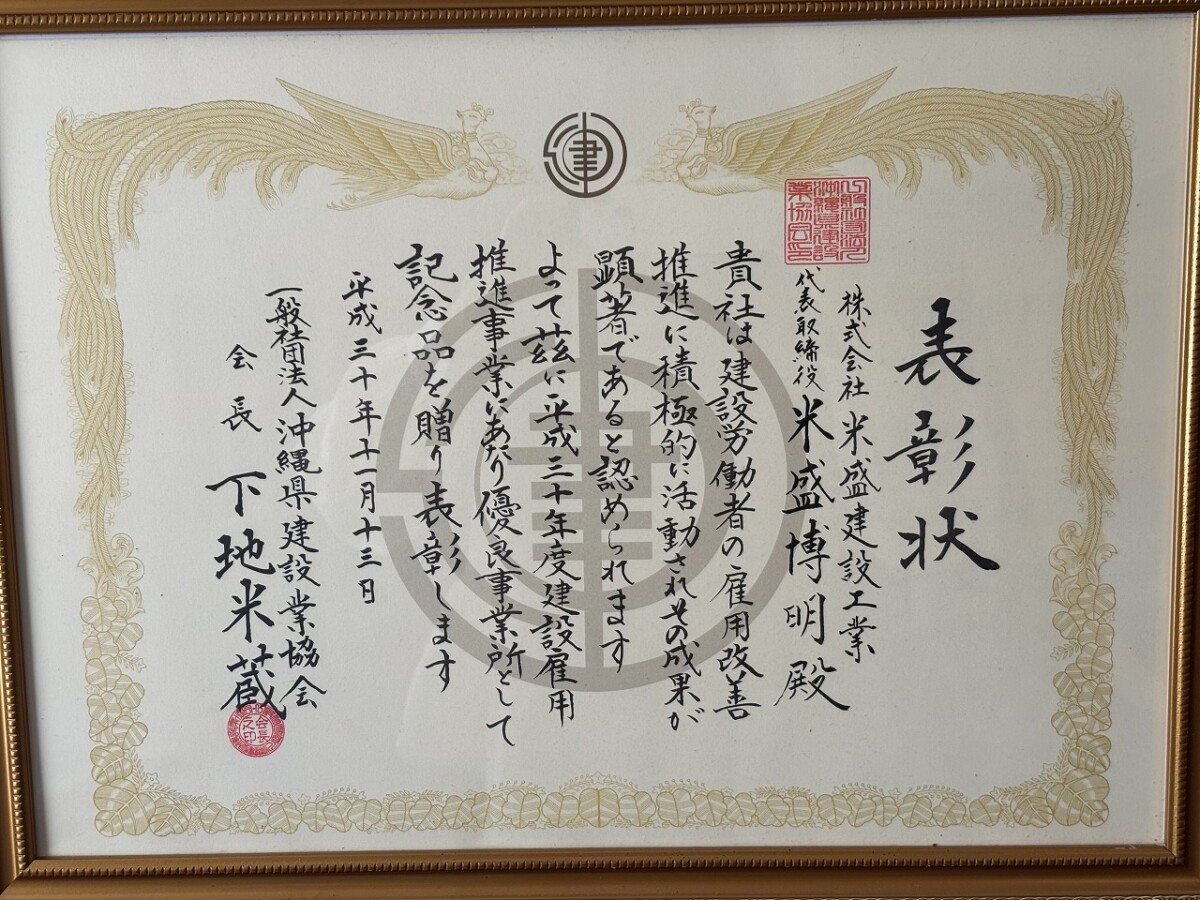 表彰状
株式会社 米盛建設工業
代表取締役 米盛博明殿
貴社は建設労働者の雇用改善
推進に積極的に活動されその成果が
顕著であると認められます
よって茲に平成三十年度建設雇用
推進事業にあたり優良事業所として
記念品を贈り表彰します
平成三十年十一月十三日
一般社団法人 沖縄県建設業協会
会長 下地米蔵
一般社団法人
沖縄県建設
業協会印
会長
之印
建